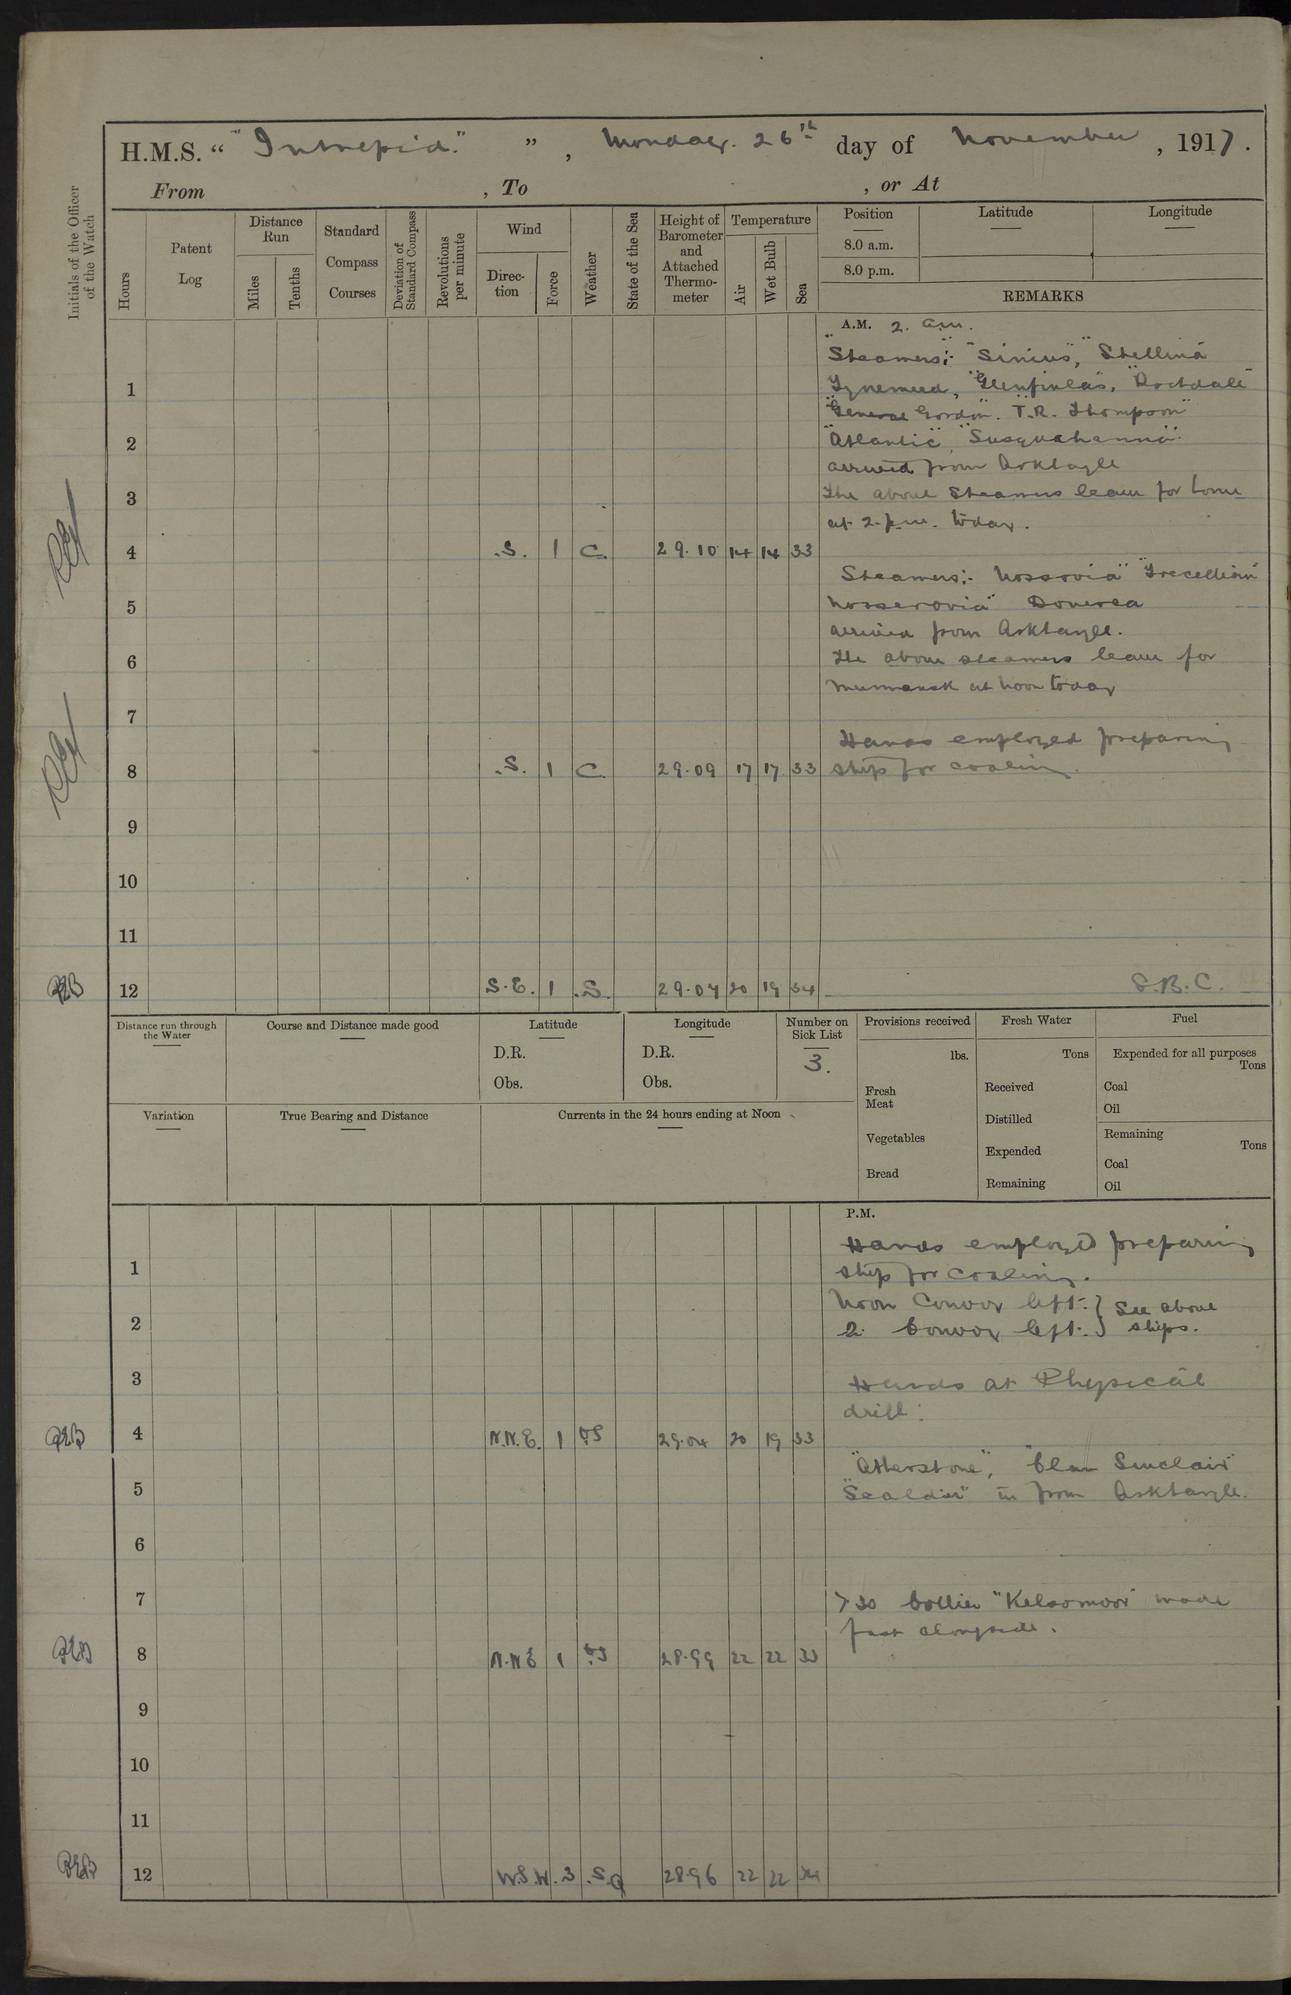 H.M.S. " "Intrepid." " , Monday. 26th day of November , 1917.
From , To , or At
Initials of the Officer of the Watch
Hours
Patent Log
Distance Run
Miles
Tenths
Standard Compass Courses
Deviation of Standard Compass
Revolutions per minute
Wind
Direction
Force
Weather
State of the Sea
Height of Barometer and Attached Thermometer
Temperature
Air
Wet Bulb
Sea
Position
8.0 a.m.
8.0 p.m.
Latitude
Longitude
REMARKS
A.M. 2. a.m.
"Steamers:- "Sirius", "Stellina"
Tynemead, "Glenfinlas", "Rochdale"
"General Gordon". "T.R. Thompson"
"Atlantic" "Susquehanna"
1
2
arrived from Arkhagle
3
The above Steamers leave for home
at 2. p.m. today.
4 .S. 1 C. 29.10 14 14 33
Steamers:-
5
arrived from Arkhangle.
6
The above steamers leave for
Murmansk at noon today
7
Hands employed preparing
8 .S. 1 C 29.09 17 17 33 ship for coaling.
9
10
11
12 S.E. 1 .S. 29.07 20 19 34 S.B.C.
Distance run through the Water
Course and Distance made good
Latitude
D.R.
Obs.
Longitude
D.R.
Obs.
Number on Sick List
3.
Provisions received
lbs.
Fresh Meat
Vegetables
Bread
Fresh Water
Tons
Received
Distilled
Expended
Remaining
Fuel
Expended for all purposes
Tons
Coal
Oil
Remaining
Tons
Coal
Oil
Variation
True Bearing and Distance
Currents in the 24 hours ending at Noon
P.M.
Hands employed preparing
1 ship for coaling.
Noon Convoy left. } See above
2 2. Convoy left. } ships.
3 Hands at Physical
drill.
4 N.N.E. 1 29.04 20 19 33
"Atherstone", "Clan Sinclair"
5 "Scaldier" in from Arkhangle.
6
7 7.30 Collier "Kelsomoor" made
fast alongside.
8 N.N.E 1 28.99 22 22 33
9
10
11
12 W.S.W. 3 .S.Q 28.96 22 22 34